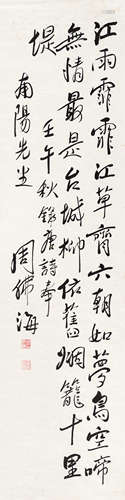 江雨霏霏江草齊六朝如夢鳥空啼
無情最是台城柳依舊烟籠十里
堤
壬午秋錄唐詩奉
甫陽先生
周佛海